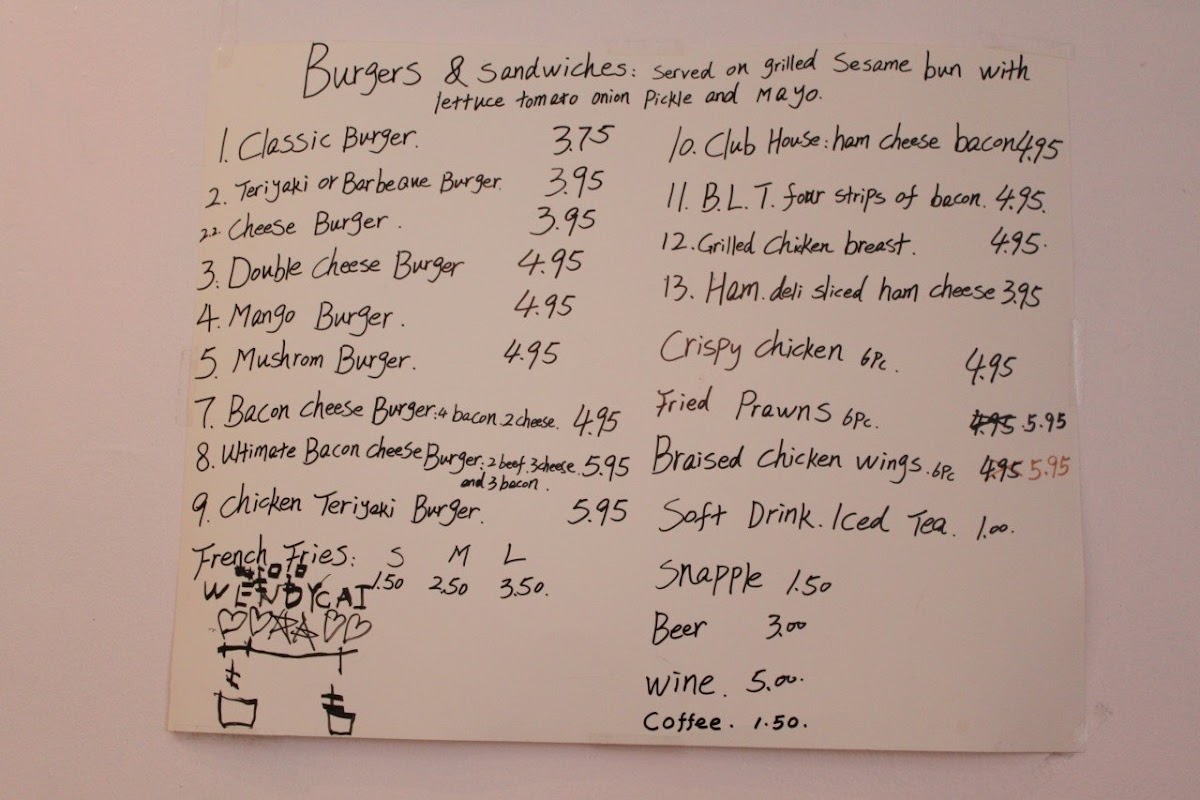 Burgers & Sandwiches: Served on grilled Sesame bun with
lettuce tomato onion Pickle and Mayo.
1. Classic Burger. 3.75
2. Teriyaki or Barbeaue Burger. 3.95
2.2. Cheese Burger. 3.95
3. Double Cheese Burger 4.95
4. Mango Burger. 4.95
5. Mushrom Burger. 4.95
7. Bacon cheese Burger: 4 bacon 2 cheese. 4.95
8. Ultimate Bacon cheese Burger: 2 beef. 3 cheese. 5.95
and 3 bacon.
9. Chicken Teriyaki Burger. 5.95
French Fries: S M L
1.50 2.50 3.50.
WENDY CAI
10. Club House: ham cheese bacon 4.95
11. B.L.T. four strips of bacon. 4.95.
12. Grilled Chicken breast. 4.95.
13. Ham. deli sliced ham cheese 3.95
Crispy chicken 6Pc. 4.95
Fried Prawns 6Pc. 4.95 5.95
Braised chicken wings. 6Pc 4.95 5.95
Soft Drink. Iced Tea. 1.00.
Snapple 1.50
Beer 3.00
wine. 5.00.
Coffee. 1.50.